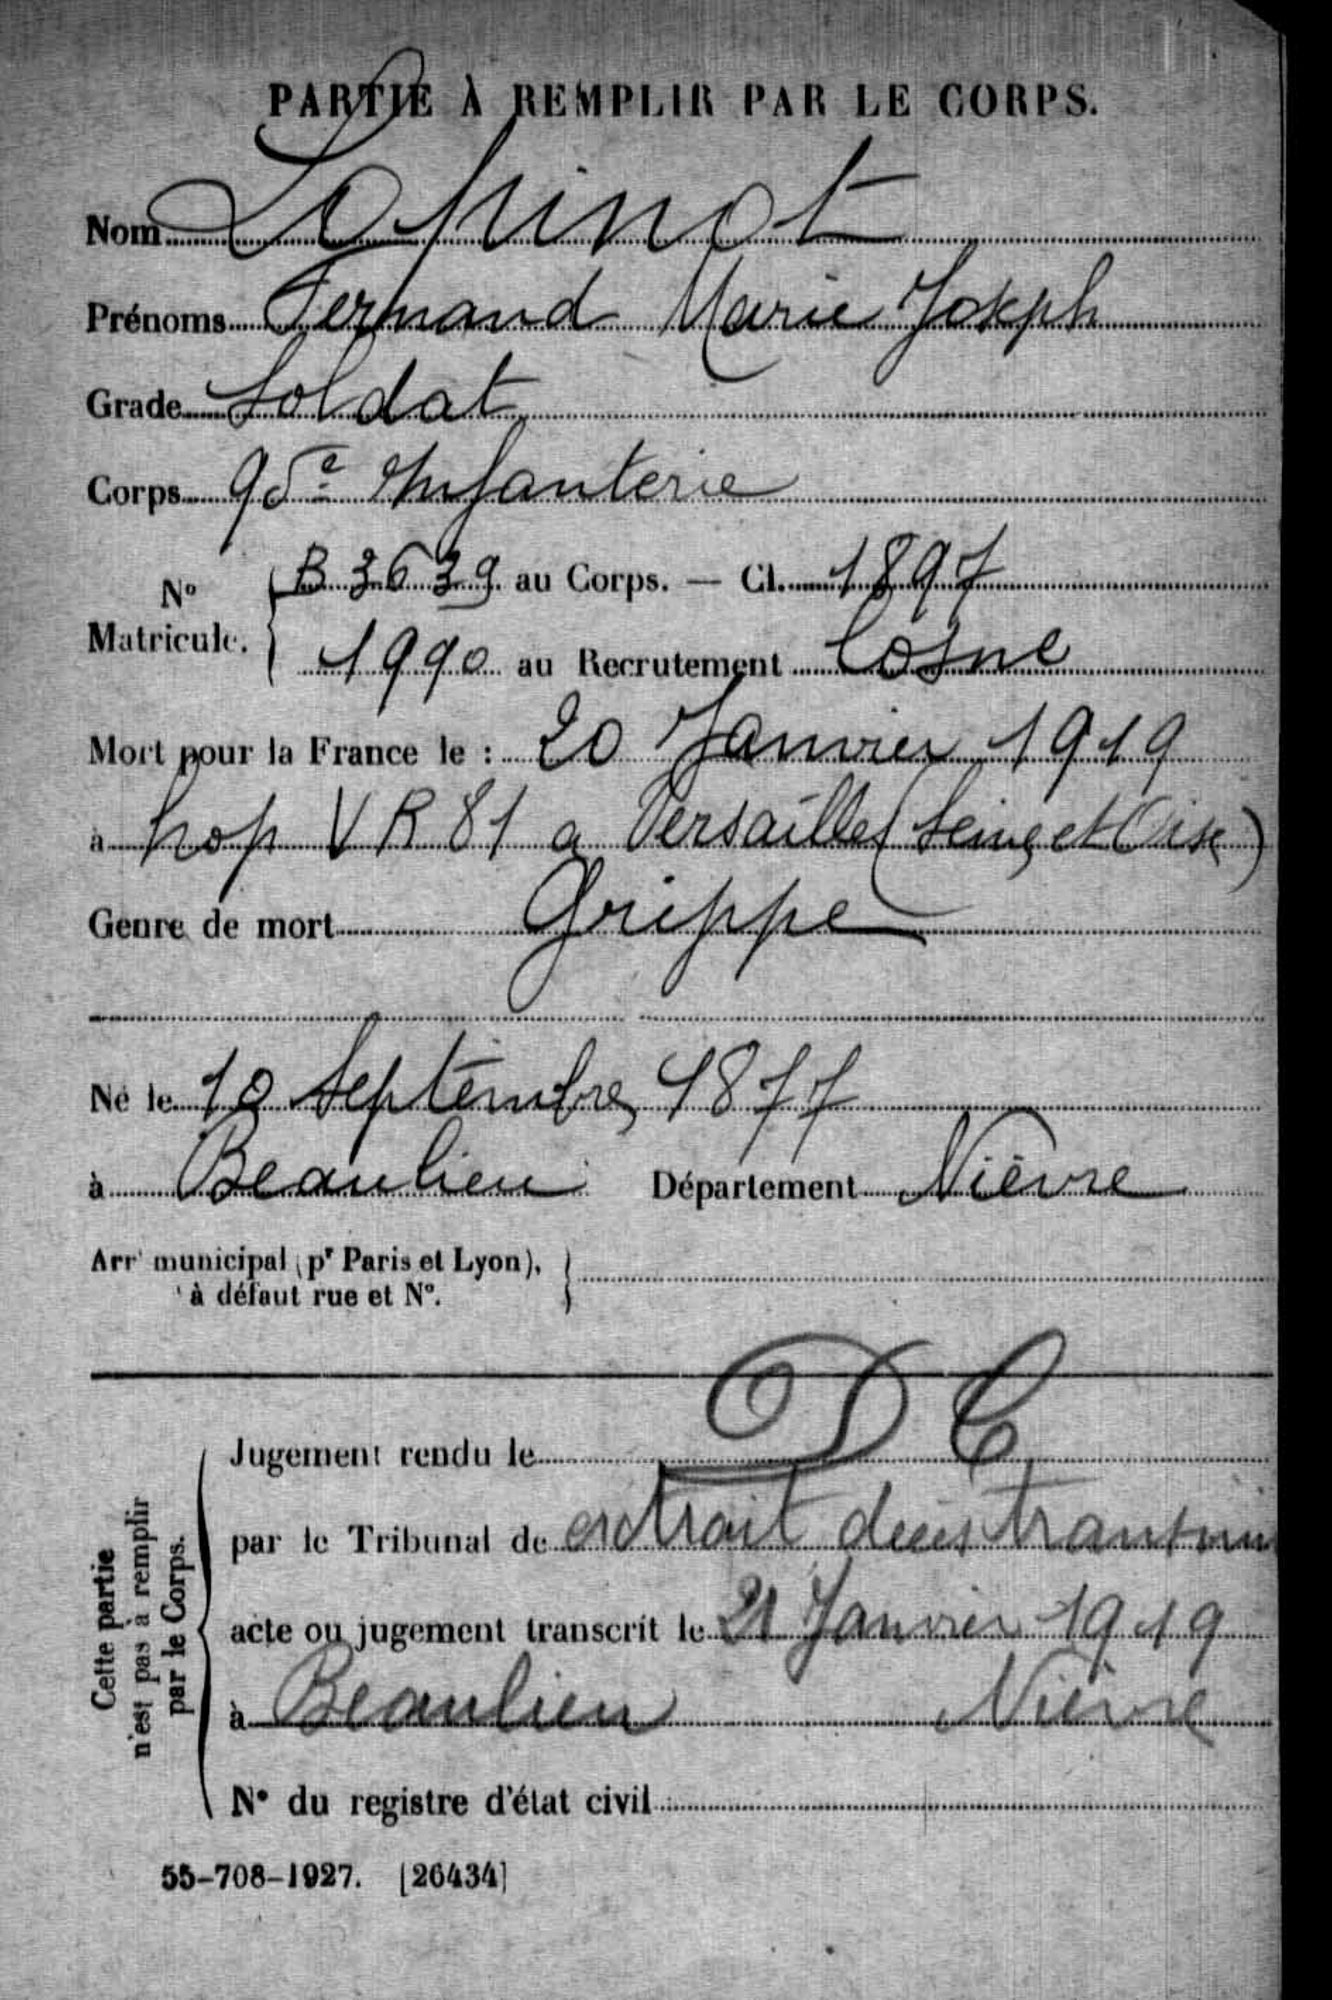 PARTIE À REMPLIR PAR LE CORPS.
Nom Lopinot
Prénoms Fernand Marie Joseph
Grade Soldat
Corps 95e Infanterie
No Matricule. B 3639 au Corps. — Cl. 1897
1990 au Recrutement Cosne
Mort pour la France le : 20 Janvier 1919
à hop VR 81 a Versailles (Seine et Oise)
Genre de mort Grippe
Né le 10 Septembre 1877
à Beaulieu Département Nièvre
Arrt municipal (pr Paris et Lyon),
à défaut rue et No.
DC
Cette partie
n'est pas à remplir
par le Corps.
Jugement rendu le
par le Tribunal de extrait décès
acte ou jugement transcrit le 21 Janvier 1919
à Beaulieu Nièvre
No du registre d'état civil
55-708-1927. [26434]